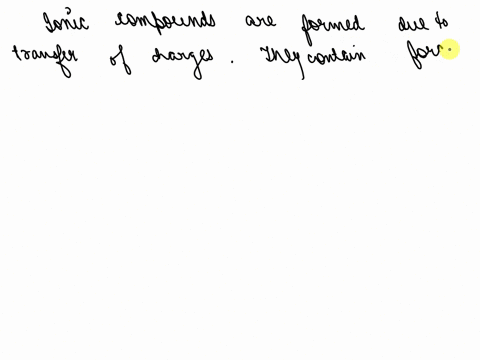 Ionic compounds are formed due to
transfer of charges. They contain for